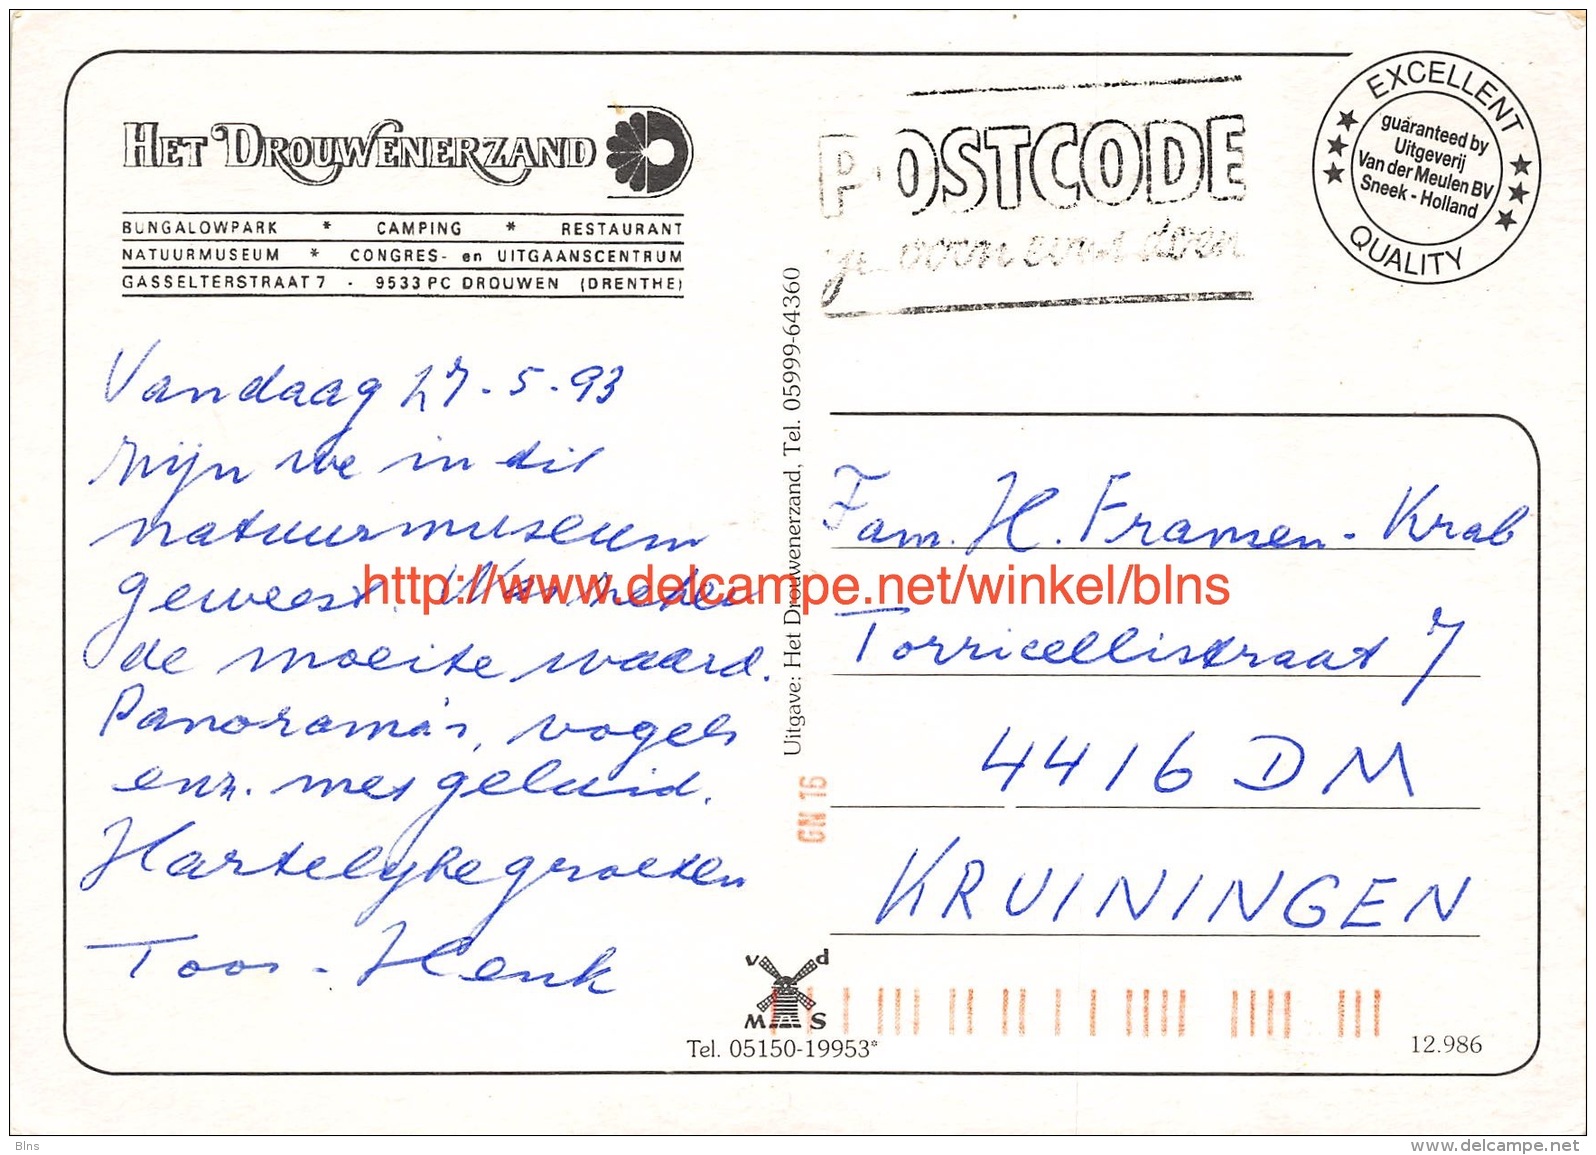 HET DROUWENERZAND
BUNGALOWPARK * CAMPING * RESTAURANT
NATUURMUSEUM * CONGRES- en UITGAANSCENTRUM
GASSELTERSTRAAT 7 - 9533 PC DROUWEN (DRENTHE)
POSTCODE
gewoon even doen
EXCELLENT
guaranteed by
Uitgeverij
Van der Meulen BV
Sneek - Holland
QUALITY
Vandaag 27-5-93
zijn we in dit
natuurmuseum
geweest. Was zeker
de moeite waard.
Panorama's, vogels
enz. met geluid.
Hartelyke groeten
Toos - Henk
Uitgave: Het Drouwenerzand, Tel. 05999-64360
Fam. H. Fransen - Krab
Torricellistraat 7
4416 DM
KRUININGEN
GN 16
v d
M S
Tel. 05150-19953*
12.986
http://www.delcampe.net/winkel/blns
Blns
www.delcampe.net